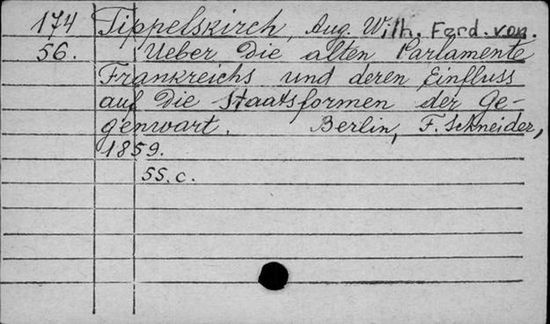 174 Tippelskirch, Aug. Wilh. Ferd. von.
56. Ueber die alten Parlamente
Frankreichs und deren Einfluss
auf die Staatsformen der Ge-
genwart. Berlin, F. Schneider,
1859.
55. c.